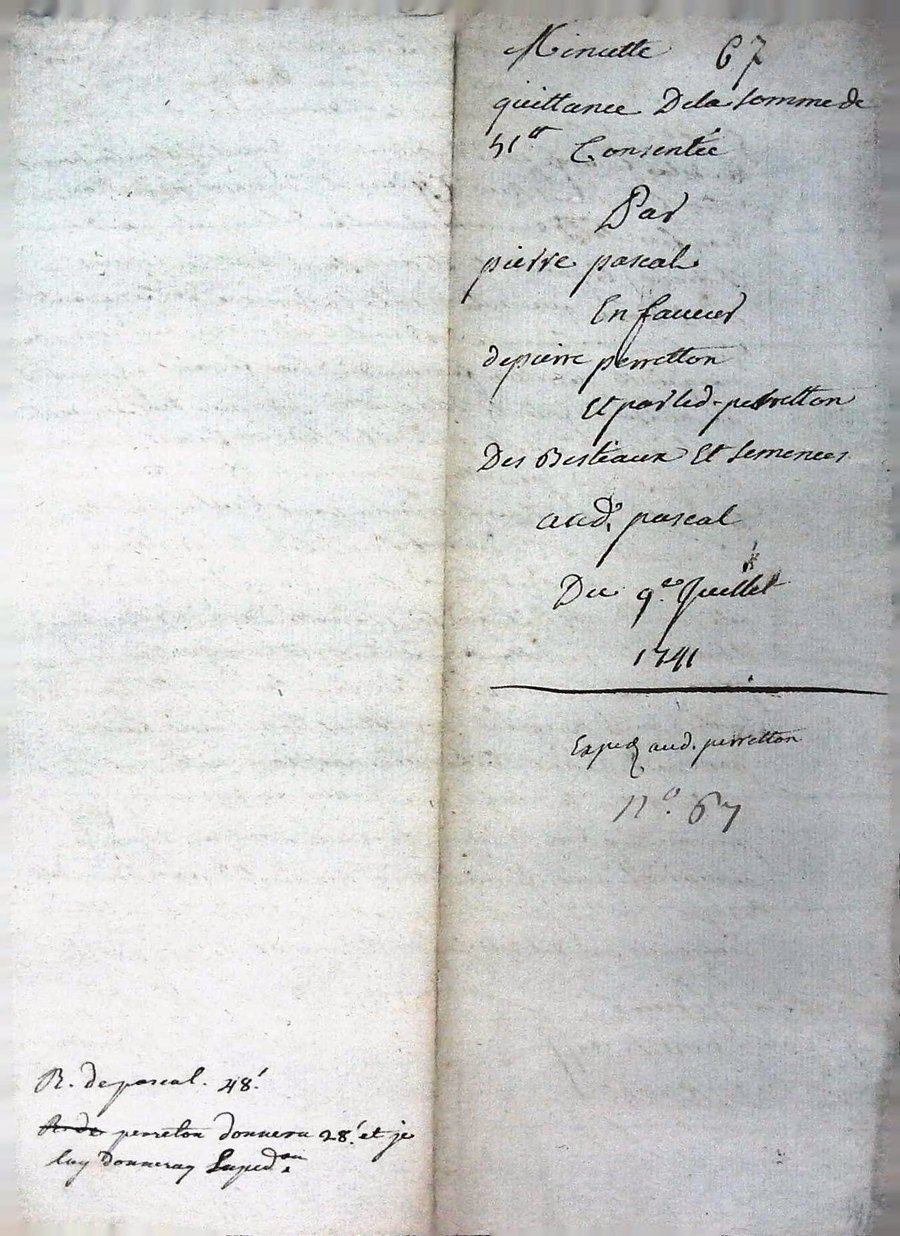 Minutte 67
quittance Dela somme de
51ᵗᵗ Consentée
Par
pierre pascal
En faueur
depierre perretton
Et par led. perretton
Des Bestiaux Et semences
aud. pascal
Du 9ᵉ Juillet
1741
Exped aud. perretton
N°. 67
R. de pascal. 48ˢ
perreton donnera 28ˢ et je
luy donneray Lexpedᵒⁿ